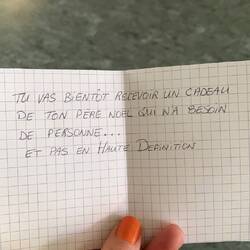 TU VAS BIENTÔT RECEVOIR UN CADEAU
DE TON PÈRE NOËL QUI N'A BESOIN
DE PERSONNE...
ET PAS EN HAUTE DEFINITION